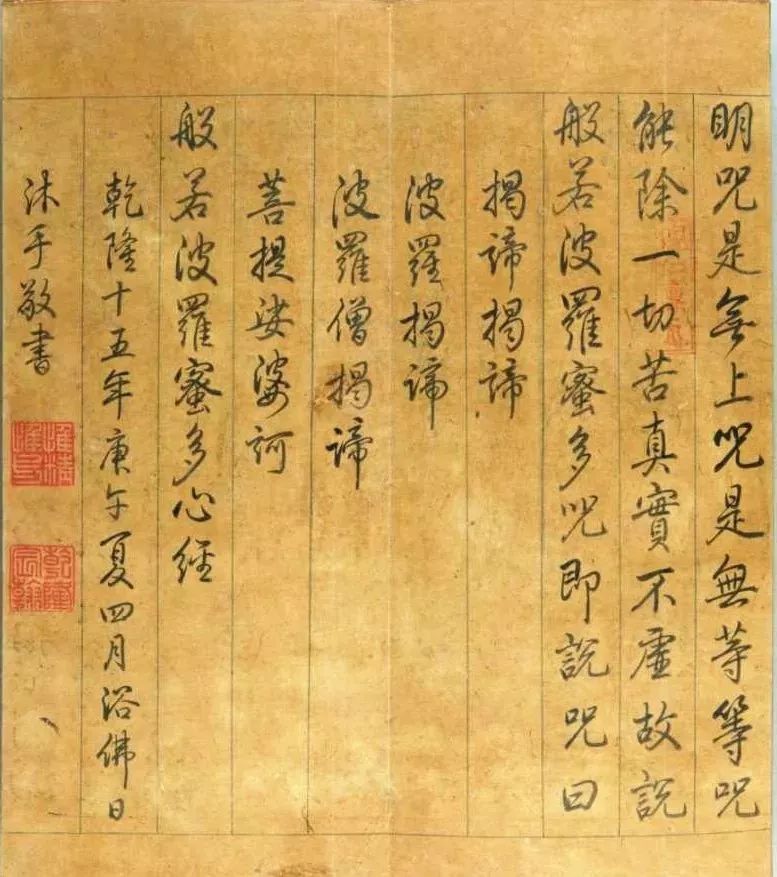 明咒是無上咒是無等等咒
能除一切苦真實不虛故說
般若波羅蜜多咒即說咒曰
揭諦揭諦
波羅揭諦
波羅僧揭諦
菩提娑婆訶
般若波羅蜜多心經
乾隆十五年庚午夏四月浴佛日
沐手敬書
惟精惟一
乾隆宸翰